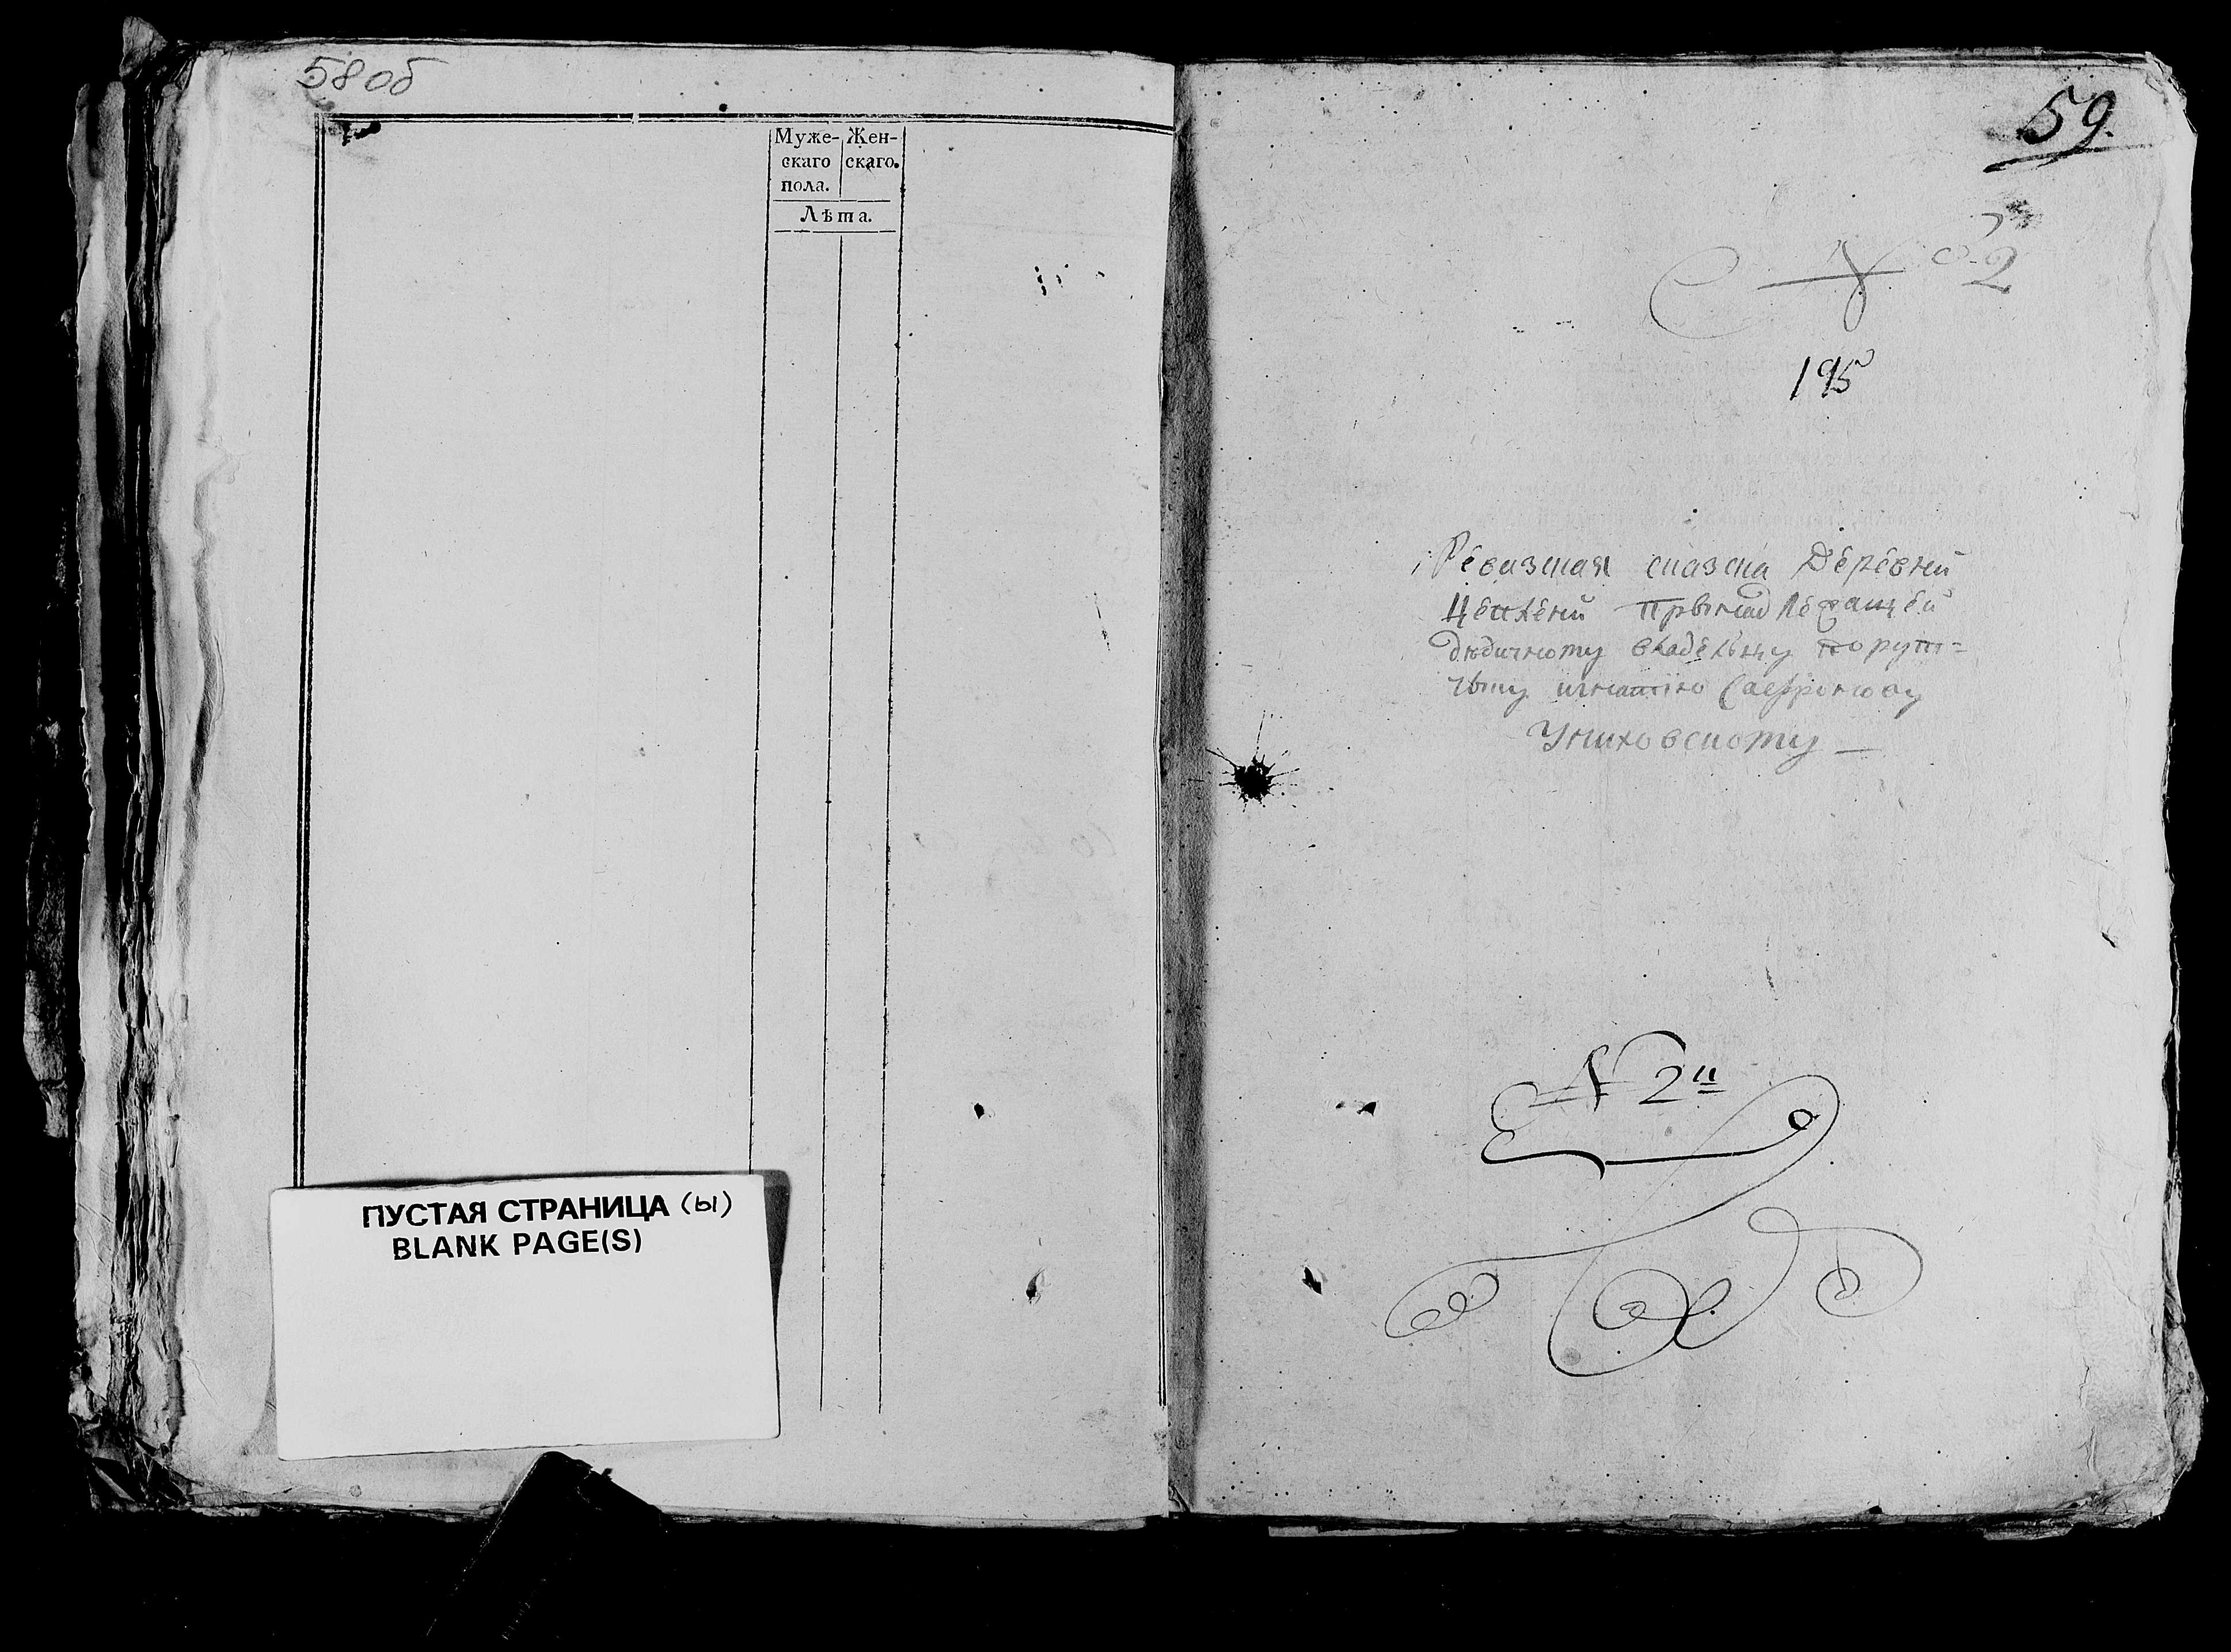 58об
Муже- Жен-
скаго скаго.
пола.
Лѣта.
ПУСТАЯ СТРАНИЦА (ы)
BLANK PAGE(S)
59.
№ 2
195
Ревизская сказка Деревни
принадлежащей
дедичному владельцу порут-
чику игнатию Сафронову
Униховскому —
N 2й